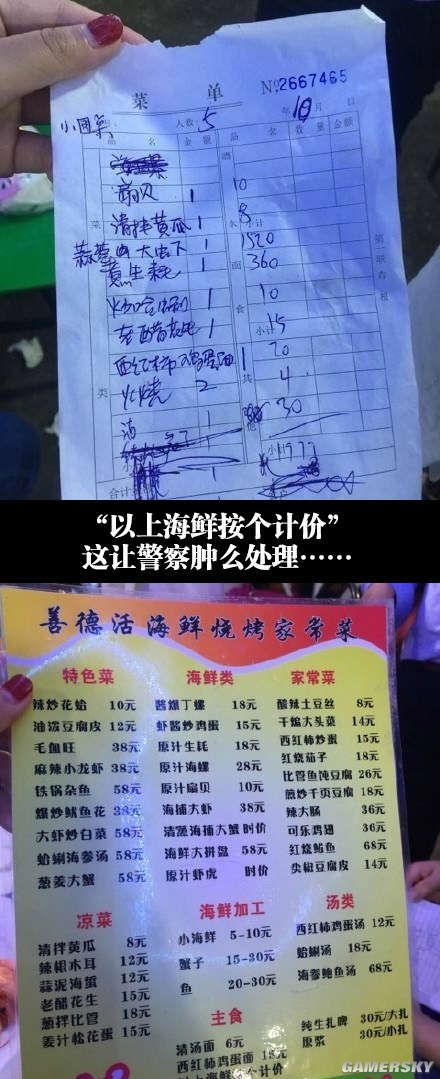 菜 单
№2667465
小圆桌
人数 5
年 10 月 日
品 名
金 额
品 名
数 量
金 额
扇贝 1 10
清拌黄瓜 1 8
蒜蓉肉大虫下 1 1520
1 360
1 10
老醋花生 1 15
1 20
火烧 2 4
酒 1 30
小计 1977
合计
“以上海鲜按个计价”
这让警察肿么处理……
善德活海鲜烧烤家常菜
特色菜
辣炒花蛤 10元
油泼豆腐皮 12元
毛血旺 38元
麻辣小龙虾 38元
铁锅杂鱼 58元
爆炒鱿鱼花 38元
大虾炒白菜 58元
蛤蜊海参汤 58元
葱姜大蟹 58元
海鲜类
酱爆丁螺 18元
虾酱炒鸡蛋 15元
原汁生蚝 18元
原汁海螺 28元
原汁扇贝 10元
海捕大虾 38元
清蒸海捕大蟹 时价
海鲜大拼盘 58元
原汁虾虎 时价
家常菜
酸辣土豆丝 8元
干煸大头菜 14元
西红柿炒蛋 15元
红烧茄子 18元
比管鱼炖豆腐 26元
煎炒千页豆腐 18元
辣大肠 36元
可乐鸡翅 36元
红烧鲅鱼 68元
尖椒豆腐皮 14元
凉菜
清拌黄瓜 8元
辣根木耳 12元
蒜泥海蜇 12元
老醋花生 15元
葱拌比管 18元
姜汁松花蛋 15元
海鲜加工
小海鲜 5-10元
蟹子 15-30元
鱼 20-30元
主食
清汤面 6元
西红柿鸡蛋面
以上海鲜按个计价
汤类
西红柿鸡蛋汤 12元
蛤蜊汤 18元
海参鲍鱼汤 68元
纯生扎啤 30元/大扎
原浆 30元/小扎
GAMERSKY